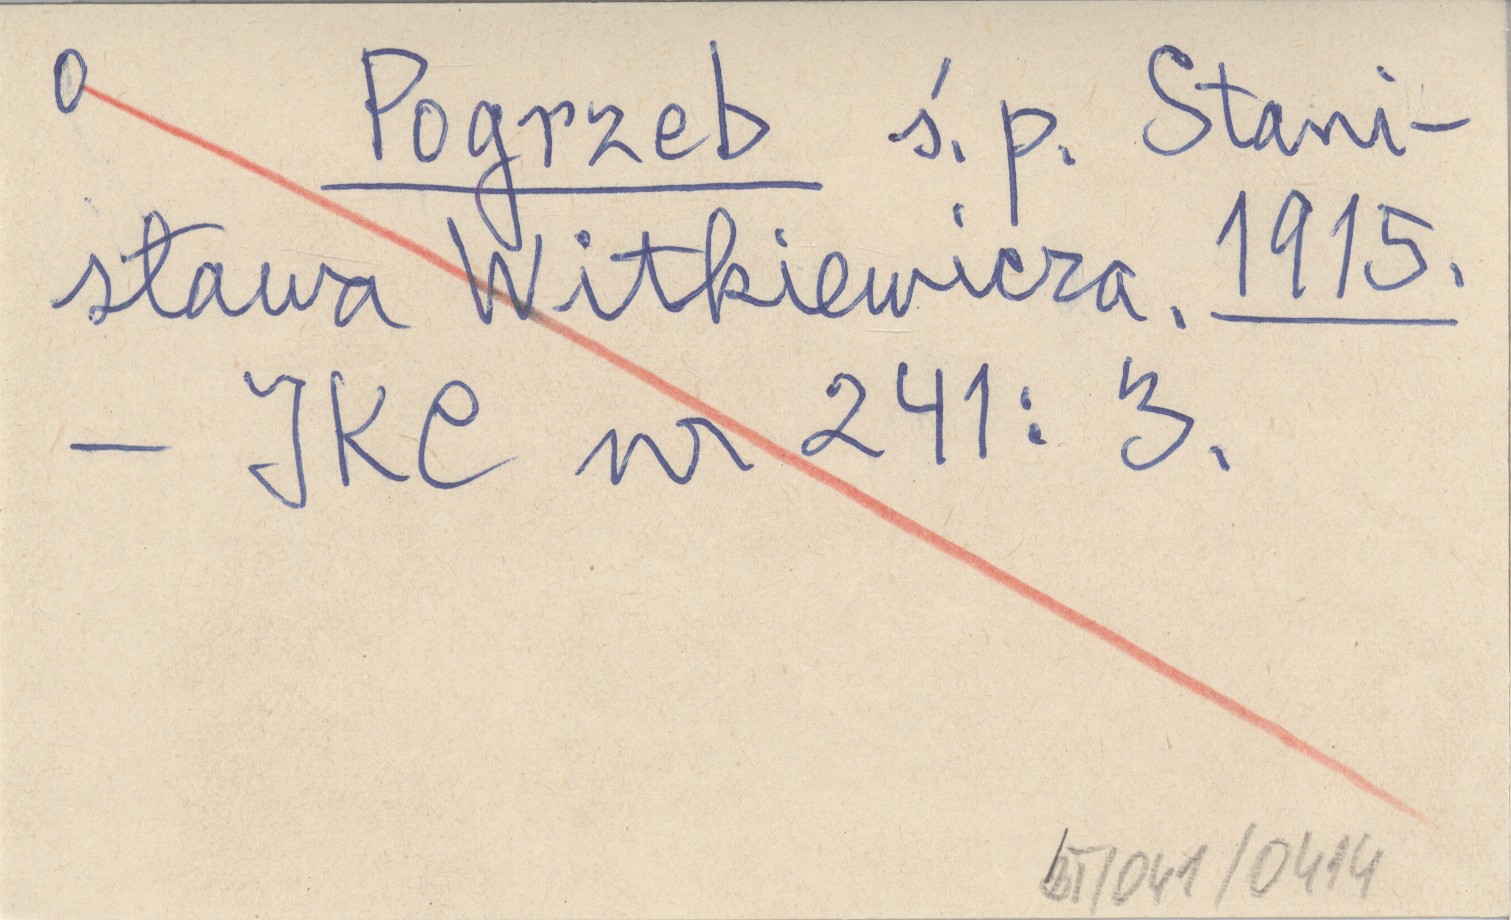 0 Pogrzeb ś.p. Stani-
sława Witkiewicza. 1915.
- IKC nr 241: 3.
/041/0414